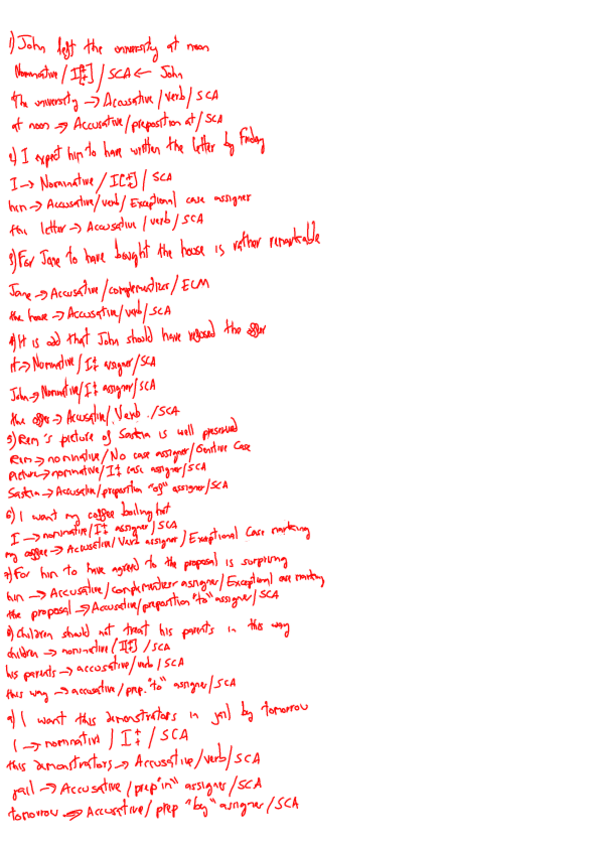 1) John left the university at noon
Nominative / I[+] / SCA ← John
the university → Accusative / Verb / SCA
at noon → Accusative / preposition at / SCA
2) I expect him to have written the letter by Friday
I → Nominative / I[+] / SCA
him → Accusative / verb / Exceptional case assigner
the letter → Accusative / verb / SCA
3) For Jane to have bought the house is rather remarkable
Jane → Accusative / complementizer / ECM
the house → Accusative / verb / SCA
4) It is odd that John should have refused the offer
it → Nominative / I+ assigner / SCA
John → Nominative / I+ assigner / SCA
the offer → Accusative / Verb / SCA
5) Rem's picture of Saskia is well preserved
Rem → nominative / No case assigner / Genitive Case
Picture → nominative / I+ case assigner / SCA
Saskia → Accusative / preposition "of" assigner / SCA
6) I want my coffee boiling hot
I → nominative / I+ assigner / SCA
my coffee → Accusative / Verb assigner / Exceptional Case marking
7) For him to have agreed to the proposal is surprising
him → Accusative / complementizer assigner / Exceptional case marking
the proposal → Accusative / preposition "to" assigner / SCA
8) Children should not treat his parents in this way
children → nominative / I[+] / SCA
his parents → accusative / verb / SCA
this way → accusative / prep. "to" assigner / SCA
9) I want this demonstrators in jail by tomorrow
I → nominative / I+ / SCA
this demonstrators → Accusative / verb / SCA
jail → Accusative / prep "in" assigner / SCA
tomorrow → Accusative / prep "by" assigner / SCA